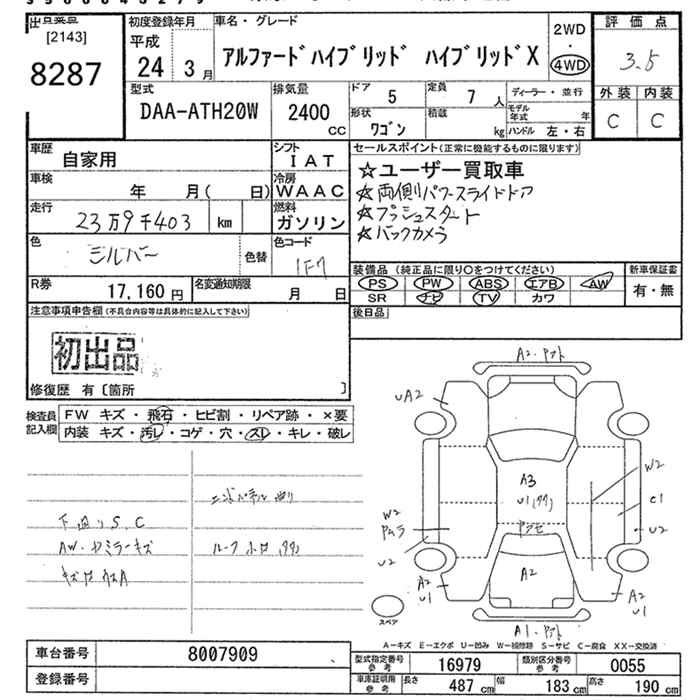 出品票
[2143]
8287
初度登録年月
平成
24年 3月
車名・グレード
アルファードハイブリッド ハイブリッドX
2WD
・
4WD
評価点
3.5
外装 内装
C C
型式
DAA-ATH20W
排気量
2400
CC
ドア 5
定員 7 人
形状 ワゴン
積載 kg
ディーラー・並行
モデル年式 年
ハンドル 左・右
車歴 自家用
シフト
IAT
車検 年 月( 日)
冷房
WAAC
走行 23万9千403 km
燃料
ガソリン
色 シルバー
色替
色コード
1F7
R券 17,160 円
名変通知期限 月 日
セールスポイント(正常に機能するものに限ります)
☆ユーザー買取車
☆両側パワースライドドア
☆プッシュスタート
☆バックカメラ
装備品(純正品に限り○をつけてください)
PS PW ABS エアB AW
SR ナビ TV カワ
新車保証書
有・無
後日品
注意事項申告欄(不具合内容等は具体的に記入して下さい)
初出品
修復歴 有〔箇所 〕
検査員記入欄
FW キズ・飛石・ヒビ割・リペア跡・×要
内装 キズ・汚レ・コゲ・穴・スレ・キレ・破レ
下廻りS.C
AW・ドアミラーキズ
ルーフ
A2
UA2
A3
U1
W2
W2
C1
U2
U2
A2
U1
A2
A2
U1
A1
スペア
A－キズ E－エクボ U－凹み W－補修跡 S－サビ C－腐食 XX－交換済
車台番号 8007909
登録番号
型式指定番号 参考 16979
類別区分番号 参考 0055
車庫証明用 参考 長さ 487 cm 幅 183 cm 高さ 190 cm